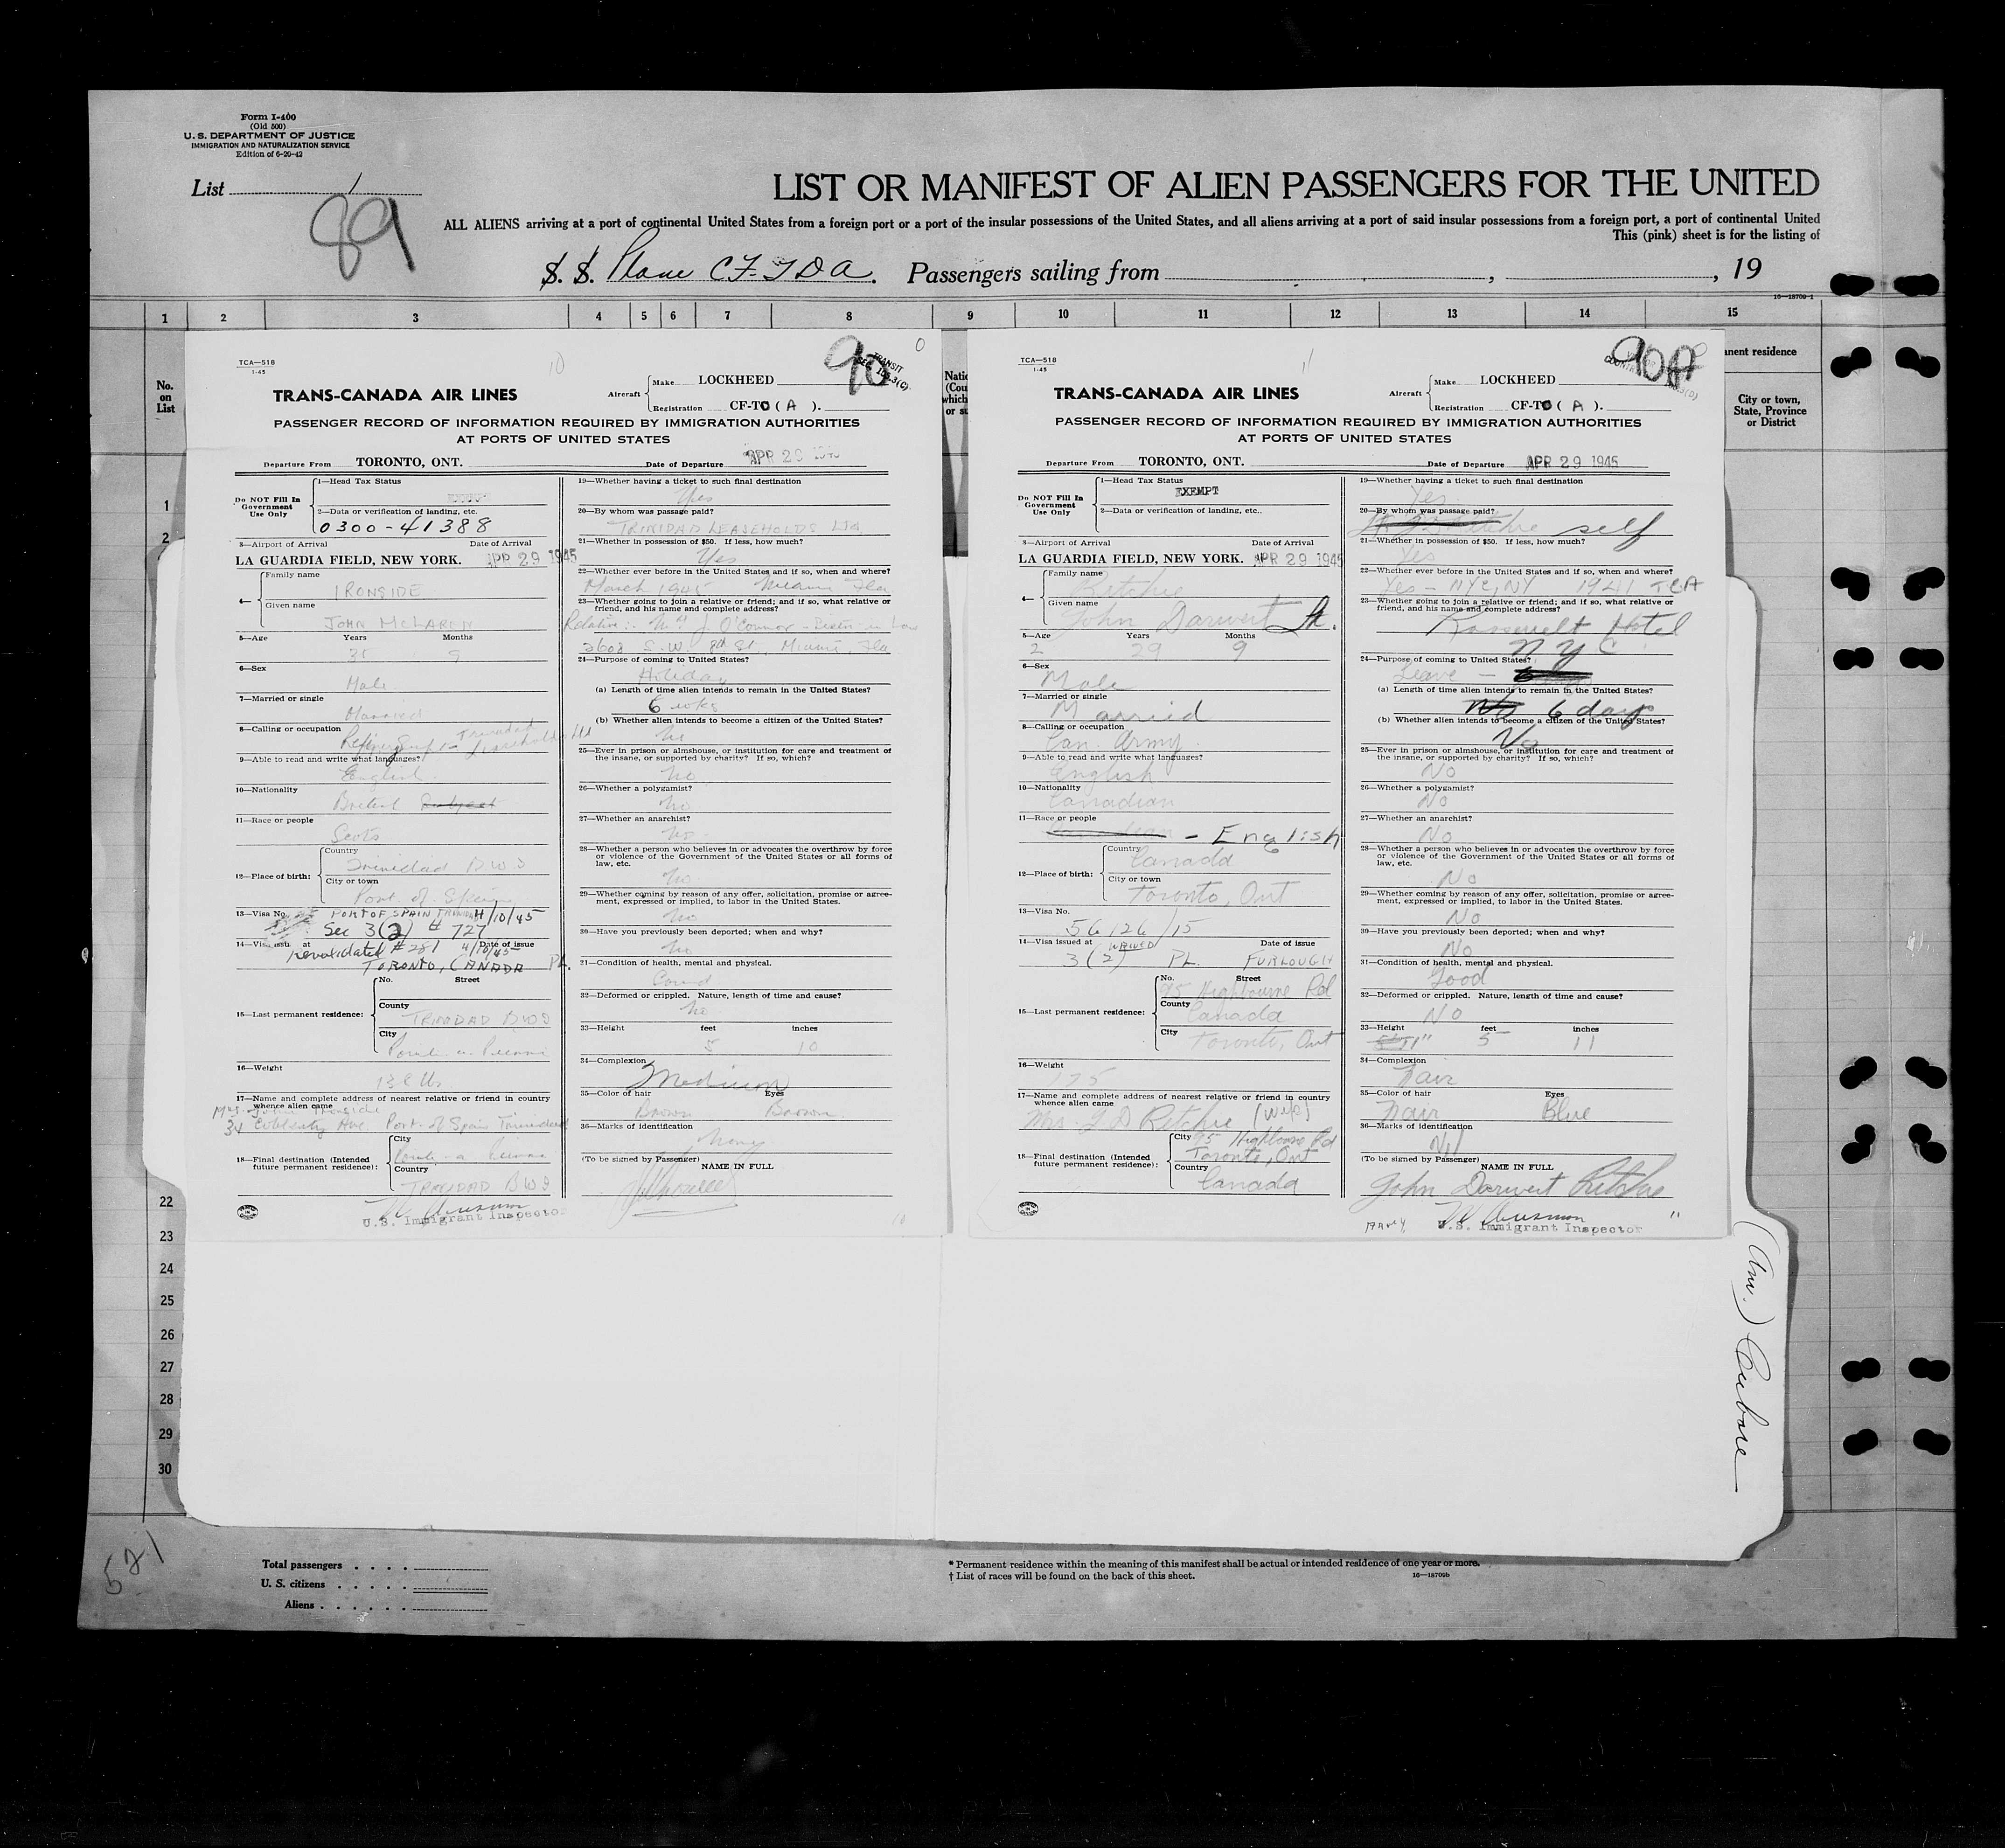 Form I-400
(Old 500)
U. S. DEPARTMENT OF JUSTICE
IMMIGRATION AND NATURALIZATION SERVICE
Edition of 6-29-42
List 1
89
LIST OR MANIFEST OF ALIEN PASSENGERS FOR THE UNITED
ALL ALIENS arriving at a port of continental United States from a foreign port or a port of the insular possessions of the United States, and all aliens arriving at a port of said insular possessions from a foreign port, a port of continental United
This (pink) sheet is for the listing of
S. S. Plane CF-TDA. Passengers sailing from , , 19
16—18709-1
1 2 3 4 5 6 7 8 9 10 11 12 13 14 15
No.
on
List
1
2
TCA—518
1-45
10
0
90
TRANSIT
TRANS-CANADA AIR LINES
Aircraft
Make LOCKHEED
Registration CF-TC ( A ).
PASSENGER RECORD OF INFORMATION REQUIRED BY IMMIGRATION AUTHORITIES
AT PORTS OF UNITED STATES
Departure From TORONTO, ONT. Date of Departure APR 29
Do NOT Fill In
Government
Use Only
1—Head Tax Status
2—Data or verification of landing, etc.
0300-41388
3—Airport of Arrival Date of Arrival
LA GUARDIA FIELD, NEW YORK. APR 29 1945
4—
Family name
IRONSIDE
Given name
JOHN MCLAREN
5—Age Years Months
35 9
6—Sex
Male
7—Married or single
Married
8—Calling or occupation
Refinery Supt - Trinidad Leaseholds Ltd
9—Able to read and write what languages?
English
10—Nationality
British Subject
11—Race or people
Scots
12—Place of birth:
Country
Trinidad BWI
City or town
Port of Spain
13—Visa No. PORT OF SPAIN TRINIDAD 4/10/45
Sec 3(2) # 727
14—Visa issued at Date of issue
Revalidated #281 4/10/45
TORONTO, CANADA PL.
15—Last permanent residence:
No. Street
County
TRINIDAD BWI
City
Pointe-a-Pierre
16—Weight
17—Name and complete address of nearest relative or friend in country
whence alien came
Mrs. John Ironside
Ave. Port of Spain Trinidad
18—Final destination (Intended
future permanent residence):
City
Pointe-a-Pierre
Country
TRINIDAD BWI
U.S. Immigrant Inspector
19—Whether having a ticket to such final destination
Yes
20—By whom was passage paid?
TRINIDAD LEASEHOLDS Ltd
21—Whether in possession of $50. If less, how much?
Yes
22—Whether ever before in the United States and if so, when and where?
March 1945 Miami Fla
23—Whether going to join a relative or friend; and if so, what relative or
friend, and his name and complete address?
Relative:- Mrs J. O'Connor - Sister in Law
2608 S.W. 8th St., Miami, Fla
24—Purpose of coming to United States?
Holiday
(a) Length of time alien intends to remain in the United States?
6 wks
(b) Whether alien intends to become a citizen of the United States?
No
25—Ever in prison or almshouse, or institution for care and treatment of
the insane, or supported by charity? If so, which?
No
26—Whether a polygamist?
No
27—Whether an anarchist?
No
28—Whether a person who believes in or advocates the overthrow by force
or violence of the Government of the United States or all forms of
law, etc.
No
29—Whether coming by reason of any offer, solicitation, promise or agree-
ment, expressed or implied, to labor in the United States.
No
30—Have you previously been deported; when and why?
No
31—Condition of health, mental and physical.
Good
32—Deformed or crippled. Nature, length of time and cause?
No
33—Height feet inches
5 10
34—Complexion
Medium
35—Color of hair Eyes
Brown Brown
36—Marks of identification
None
(To be signed by Passenger)
NAME IN FULL
10
TCA—518
1-45
11
90A
TRANS-CANADA AIR LINES
Aircraft
Make LOCKHEED
Registration CF-TC ( A ).
PASSENGER RECORD OF INFORMATION REQUIRED BY IMMIGRATION AUTHORITIES
AT PORTS OF UNITED STATES
Departure From TORONTO, ONT. Date of Departure APR 29 1945
Do NOT Fill In
Government
Use Only
1—Head Tax Status
EXEMPT
2—Data or verification of landing, etc..
3—Airport of Arrival Date of Arrival
LA GUARDIA FIELD, NEW YORK. APR 29 1945
4—
Family name
Ritchie
Given name
John Darwent
5—Age Years Months
2 29 9
6—Sex
Male
7—Married or single
Married
8—Calling or occupation
Can. Army
9—Able to read and write what languages?
English
10—Nationality
Canadian
11—Race or people
Canadian - English
12—Place of birth:
Country
Canada
City or town
Toronto, Ont
13—Visa No.
56126/15
14—Visa issued at WAIVED Date of issue
3(2) PL. FURLOUGH
15—Last permanent residence:
No. Street
95 Highbourne Rd
County
Canada
City
Toronto, Ont
16—Weight
175
17—Name and complete address of nearest relative or friend in country
whence alien came
Mrs J D Ritchie (Wife)
18—Final destination (Intended
future permanent residence):
City 95 Highbourne Rd
Toronto, Ont
Country
Canada
19—Whether having a ticket to such final destination
Yes
20—By whom was passage paid?
self
21—Whether in possession of $50. If less, how much?
Yes
22—Whether ever before in the United States and if so, when and where?
Yes - NYC, NY 1941 TCA
23—Whether going to join a relative or friend; and if so, what relative or
friend, and his name and complete address?
Roosevelt Hotel
N Y C
24—Purpose of coming to United States?
Leave -
(a) Length of time alien intends to remain in the United States?
6 days
(b) Whether alien intends to become a citizen of the United States?
No
25—Ever in prison or almshouse, or institution for care and treatment of
the insane, or supported by charity? If so, which?
No
26—Whether a polygamist?
No
27—Whether an anarchist?
No
28—Whether a person who believes in or advocates the overthrow by force
or violence of the Government of the United States or all forms of
law, etc.
No
29—Whether coming by reason of any offer, solicitation, promise or agree-
ment, expressed or implied, to labor in the United States.
No
30—Have you previously been deported; when and why?
No
31—Condition of health, mental and physical.
Good
32—Deformed or crippled. Nature, length of time and cause?
No
33—Height feet inches
5'11" 5 11
34—Complexion
Fair
35—Color of hair Eyes
Fair Blue
36—Marks of identification
Nil
(To be signed by Passenger)
NAME IN FULL
John Darwent Ritchie
U.S. Immigrant Inspector
11
nent residence
City or town,
State, Province
or District
Natio
(Cou
which
or su
22
23
24
25
26
27
28
29
30
521
Total passengers
U. S. citizens
Aliens
* Permanent residence within the meaning of this manifest shall be actual or intended residence of one year or more.
† List of races will be found on the back of this sheet.
16—18709b